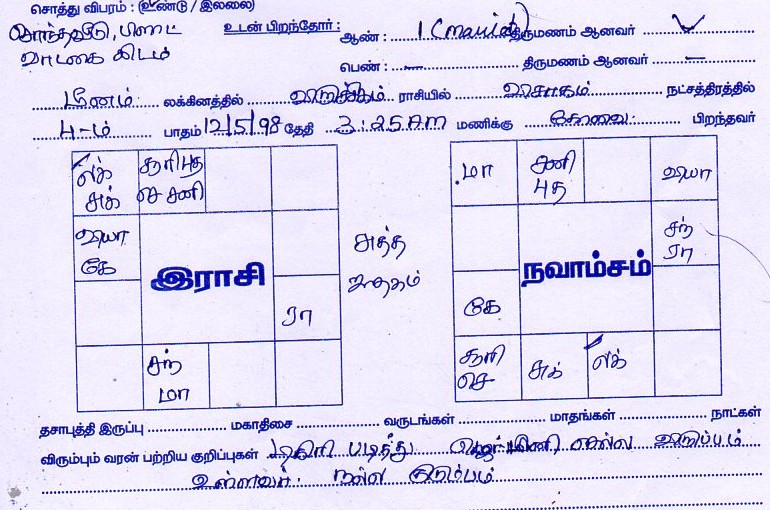 சொத்து விபரம் : (உண்டு / இல்லை)
சொந்தவீடு, பிளாட் உடன் பிறந்தோர் : ஆண் : 1 (married) திருமணம் ஆனவர்
வாடகை கிடம் பெண் : – திருமணம் ஆனவர் –
மீனம் லக்கினத்தில் விருச்சிகம் ராசியில் விசாகம் நட்சத்திரத்தில்
4-ம் பாதம் 12/5/98 தேதி 3:25 AM மணிக்கு கோவை பிறந்தவர்
லக் சுக்
சூரி புத செ சனி
வியா கே
இராசி
ரா
சந் மா
சுத்த ஜாதகம்
மா
சனி புத
வியா
சந் ரா
நவாம்சம்
கே
சூரி செ
சுக்
லக்
தசாபுத்தி இருப்பு மகாதிசை வருடங்கள் மாதங்கள் நாட்கள்
விரும்பும் வரன் பற்றிய குறிப்புகள் டிகிரி படித்து ஜெர்மனி செல்ல விருப்பம்
உள்ளவர். நல்ல குடும்பம்